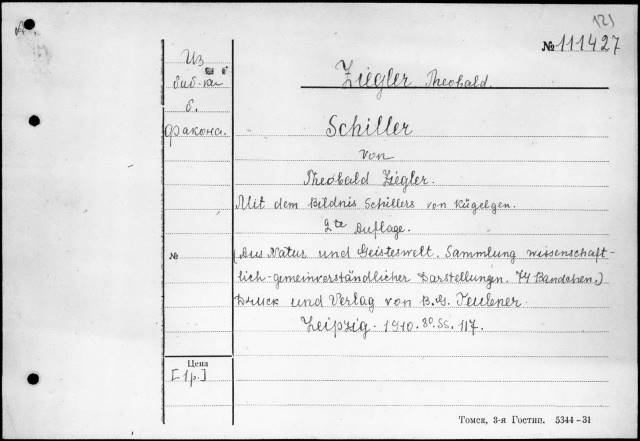 121
№ 111427
Из
биб-ки
б.
факонс.
Ziegler Theobald.
Schiller
von
Theobald Ziegler.
Mit dem Bildnis Schillers von Kügelgen.
2te Auflage.
№
(Aus Natur und Geisteswelt. Sammlung wissenschaft-
lich-gemeinverständlicher Darstellungen. 74 Bändchen.)
Druck und Verlag von B.G. Teubner
Leipzig. 1910. 8º. Ss. 117.
Цена
[1 р.]
Томск, 3-я Гостип. 5344-31